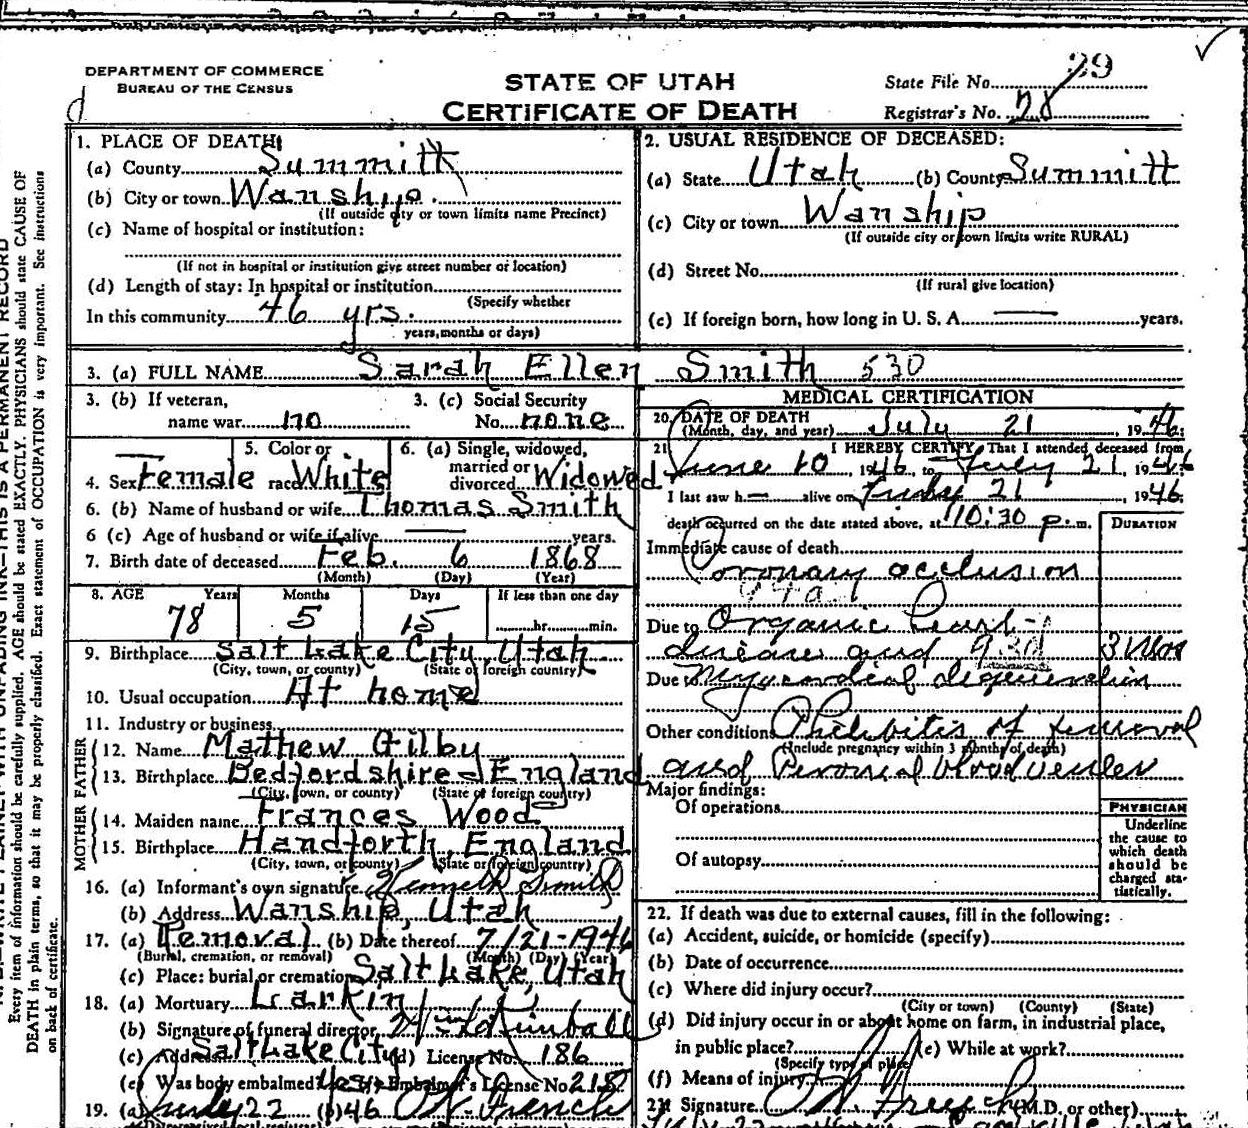 DEPARTMENT OF COMMERCE
BUREAU OF THE CENSUS
STATE OF UTAH
CERTIFICATE OF DEATH
State File No. 29
Registrar's No. 28
1. PLACE OF DEATH:
(a) County Summitt
(b) City or town Wanship.
(If outside city or town limits name Precinct)
(c) Name of hospital or institution:
(If not in hospital or institution give street number or location)
(d) Length of stay: In hospital or institution
(Specify whether
In this community 46 yrs.
years, months or days)
2. USUAL RESIDENCE OF DECEASED:
(a) State Utah (b) County Summitt
(c) City or town Wanship
(If outside city or town limits write RURAL)
(d) Street No.
(If rural give location)
(e) If foreign born, how long in U. S. A. — years.
3. (a) FULL NAME Sarah Ellen Smith 530
3. (b) If veteran,
name war no
3. (c) Social Security
No. none
4. Sex Female
5. Color or
race White
6. (a) Single, widowed,
married or
divorced Widowed
6. (b) Name of husband or wife Thomas Smith
6 (c) Age of husband or wife if alive — years.
7. Birth date of deceased Feb. 6 1868
(Month) (Day) (Year)
8. AGE Years Months Days If less than one day
78 5 15 hr. min.
9. Birthplace Salt Lake City, Utah
(City, town, or county) (State or foreign country)
10. Usual occupation At home
11. Industry or business
FATHER
12. Name Mathew Gilby
13. Birthplace Bedfordshire - England
(City, town, or county) (State of foreign country)
MOTHER
14. Maiden name Frances Wood
15. Birthplace Handforth, England
(City, town, or county) (State or foreign country)
16. (a) Informant's own signature Kenneth Smith
(b) Address Wanship, Utah
17. (a) Removal (b) Date thereof 7/21-1946
(Burial, cremation, or removal) (Month) (Day) (Year)
(c) Place: burial or cremation Salt Lake, Utah
18. (a) Mortuary Larkin
(b) Signature of funeral director Kimball
(c) Address Salt Lake City (d) License No. 186
(e) Was body embalmed? Yes (f) Embalmer's License No. 218
19. (a) 22 (b) 46 French
MEDICAL CERTIFICATION
20. DATE OF DEATH
(Month, day, and year) July 21, 1946
21. I HEREBY CERTIFY, That I attended deceased from
June 10, 1946, to July 21, 1946
I last saw h— alive on 21 1946
death occurred on the date stated above, at 10:30 p. m.
DURATION
Immediate cause of death
Coronary occlusion
Due to Organic heart-
disease and
Due to Myocardial degeneration
Other conditions Phlebitis of femoral
(Include pregnancy within 3 months of death)
and
Major findings:
Of operations
Of autopsy
PHYSICIAN
Underline
the cause to
which death
should be
charged sta-
tistically.
22. If death was due to external causes, fill in the following:
(a) Accident, suicide, or homicide (specify)
(b) Date of occurrence
(c) Where did injury occur?
(City or town) (County) (State)
(d) Did injury occur in or about home on farm, in industrial place,
in public place? (e) While at work?
(Specify type of place)
(f) Means of injury
Signature French (M.D. or other)
THIS IS A PERMANENT RECORD
Every item of information should be carefully supplied. AGE should be stated EXACTLY. PHYSICIANS should state CAUSE OF
DEATH in plain terms, so that it may be properly classified. Exact statement of OCCUPATION is very important. See instructions
on back of certificate.